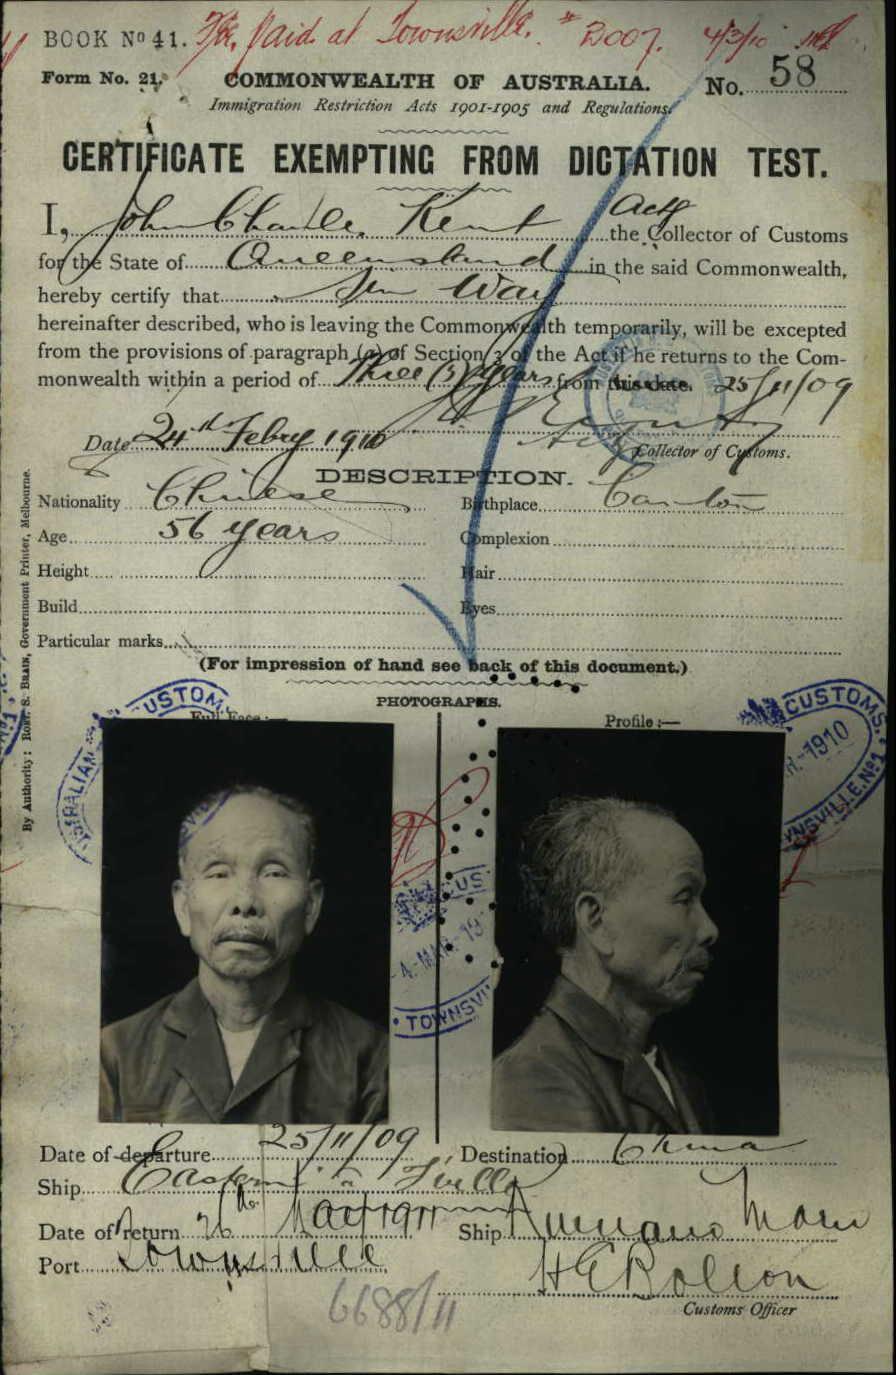 BOOK Nº 41. Fee paid at Townsville. # B007. 4/3/10
Form No. 21. COMMONWEALTH OF AUSTRALIA. No. 58
Immigration Restriction Acts 1901-1905 and Regulations.
CERTIFICATE EXEMPTING FROM DICTATION TEST.
I, John Charles Kent Actg the Collector of Customs
for the State of Queensland in the said Commonwealth,
hereby certify that Sin Way
hereinafter described, who is leaving the Commonwealth temporarily, will be excepted
from the provisions of paragraph (a) of Section 3 of the Act if he returns to the Com-
monwealth within a period of Three (3) years from this date. 25/11/09
Date 24th Febry 1910 Actg Collector of Customs.
DESCRIPTION.
Nationality Chinese Birthplace Canton
Age 56 years Complexion
Height Hair
Build Eyes
Particular marks
(For impression of hand see back of this document.)
PHOTOGRAPHS.
Full Face :— Profile :—
CUSTOMS
AUSTRALIAN
CUSTOMS.
1910
TOWNSVILLE. No 1
CUS
4-MAR 19
TOWNSVI
Date of departure 25/11/09 Destination China
Ship Eastern
Date of return 26th May 1911 Ship Kumano Maru
Port Townsville
H E Bolton
6688/11 Customs Officer
By Authority: ROBT. S. BRAIN, Government Printer, Melbourne.